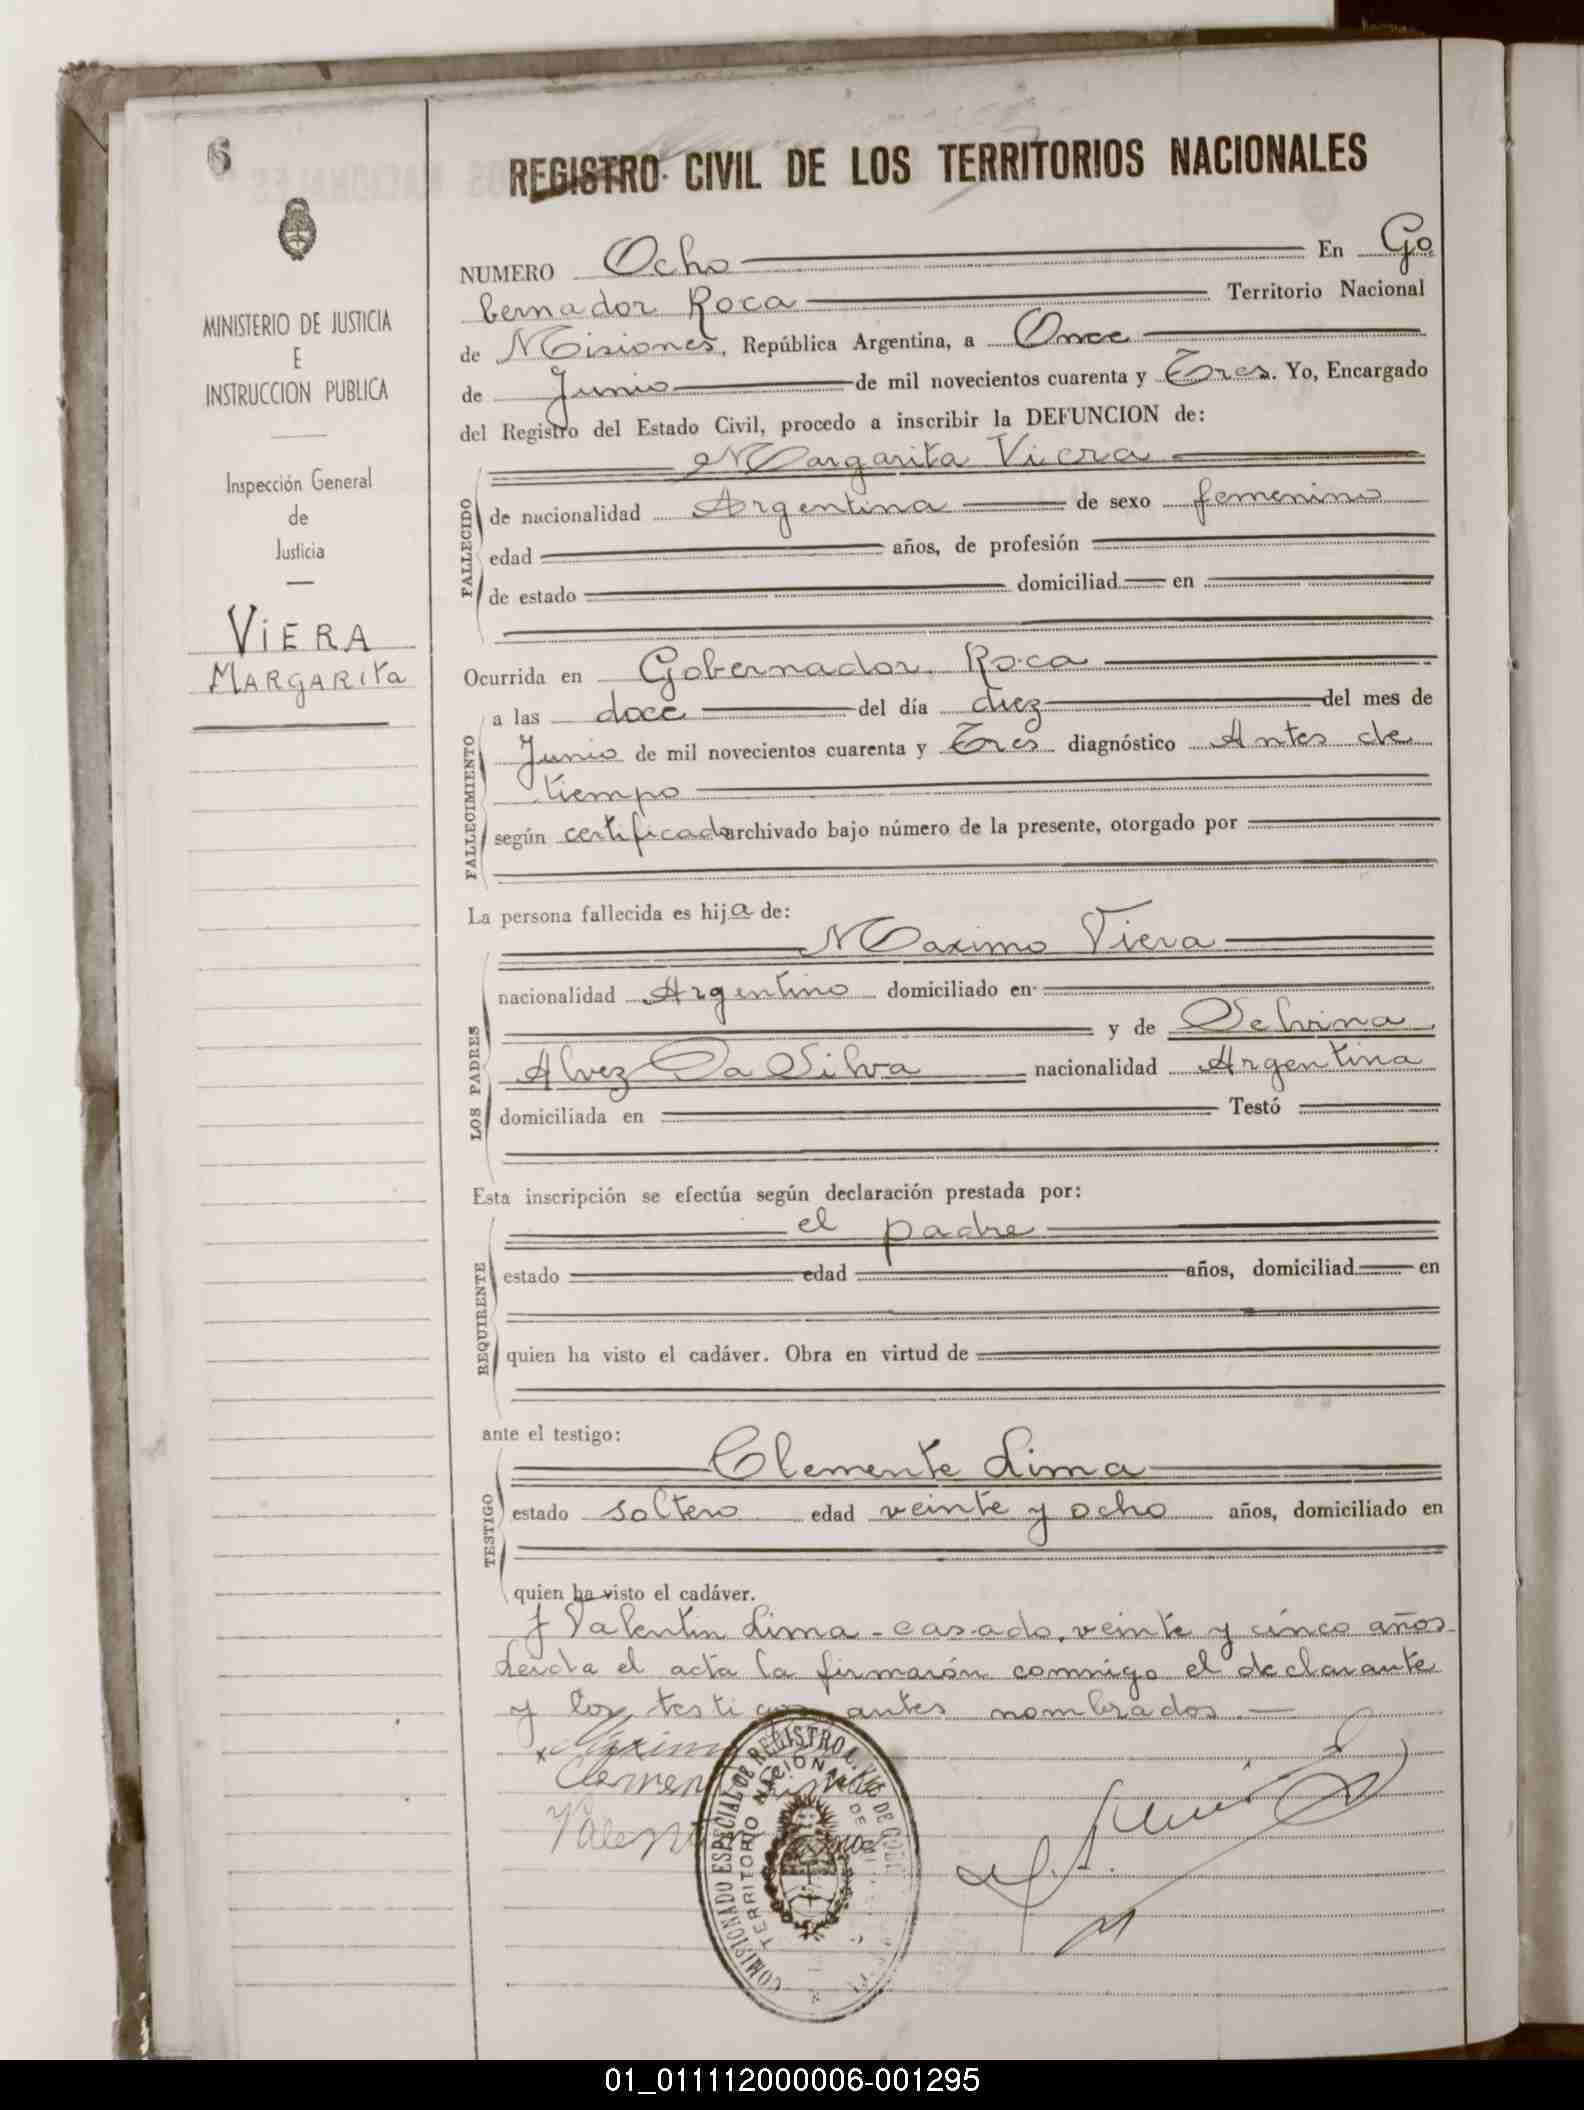 6
MINISTERIO DE JUSTICIA
E
INSTRUCCION PUBLICA
Inspección General
de
Justicia
VIERA
MARGARITA
REGISTRO CIVIL DE LOS TERRITORIOS NACIONALES
NUMERO Ocho En Go
bernador Roca Territorio Nacional
de Misiones, República Argentina, a Once
de Junio de mil novecientos cuarenta y Tres. Yo, Encargado
del Registro del Estado Civil, procedo a inscribir la DEFUNCION de:
Margarita Viera
FALLECIDO
de nacionalidad Argentina de sexo femenino
edad años, de profesión
de estado domiciliad en
Ocurrida en Gobernador Roca
FALLECIMIENTO
a las doce del día diez del mes de
Junio de mil novecientos cuarenta y Tres diagnóstico Antes de
tiempo
según certificado archivado bajo número de la presente, otorgado por
La persona fallecida es hija de:
LOS PADRES
Maximo Viera
nacionalidad Argentino domiciliado en
y de Selvina
Alvez Da Silva nacionalidad Argentina
domiciliada en Testó
Esta inscripción se efectúa según declaración prestada por:
REQUIRENTE
el padre
estado edad años, domiciliad en
quien ha visto el cadáver. Obra en virtud de
ante el testigo:
TESTIGO
Clemente Lima
estado soltero edad veinte y ocho años, domiciliado en
quien ha visto el cadáver.
y Valentin Lima - casado, veinte y cinco años
Leida el acta la firmarón conmigo el declarante
y los testigos antes nombrados.—
x Maximo
Clemente Lima
Valentin Lima
COMISIONADO ESPECIAL DE REGISTRO CIVIL DE GOB
TERRITORIO NACIONAL DE MI
01_011112000006-001295